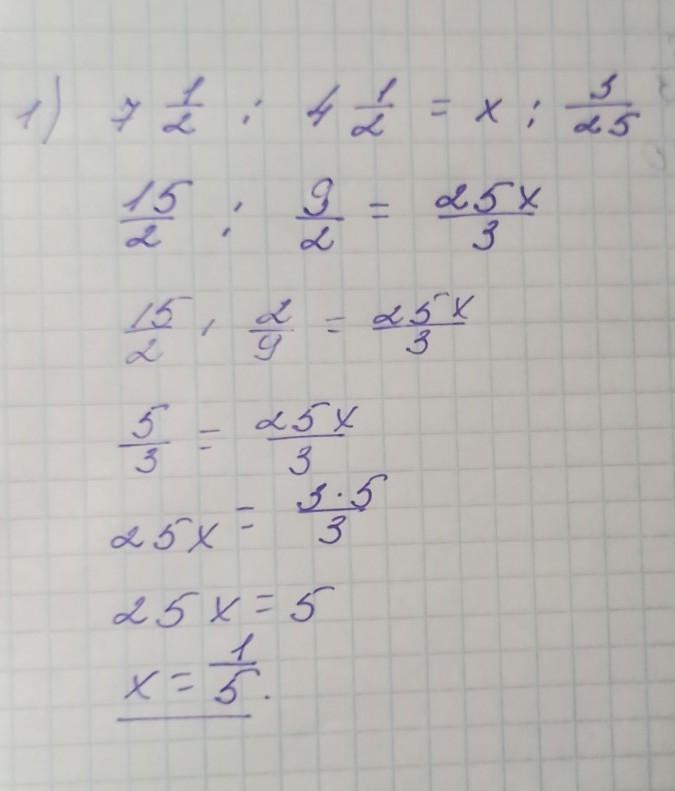 1) 7 1/2 : 4 1/2 = x : 3/25
15/2 : 9/2 = 25x/3
15/2 · 2/9 = 25x/3
5/3 = 25x/3
25x = 3·5/3
25x = 5
x = 1/5.